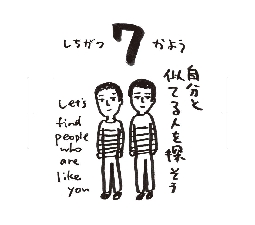 しちがつ 7 かよう
自分と
似てる人を探そう
Let's
find
people
who
are
like
you